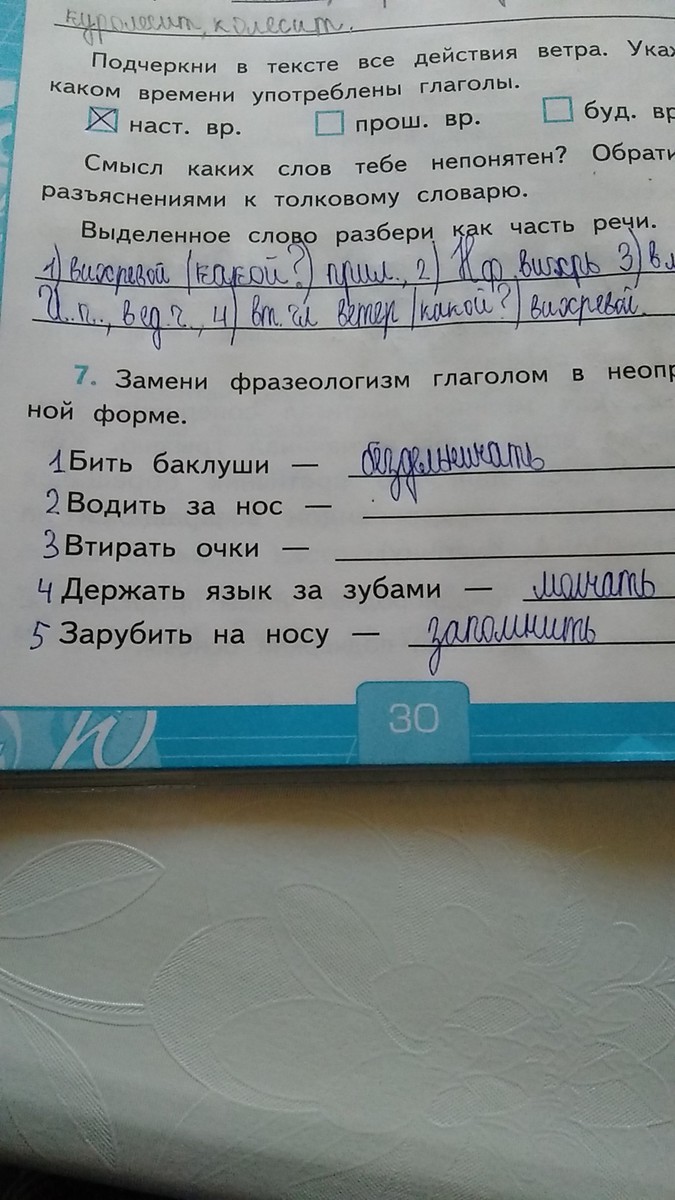 куролесит, колесит.
Подчеркни в тексте все действия ветра. Ука
каком времени употреблены глаголы.
наст. вр. прош. вр. буд. вр
Смысл каких слов тебе непонятен? Обрати
разъяснениями к толковому словарю.
Выделенное слово разбери как часть речи.
1) вихревой (какой?) прил., 2) Н.ф. вихрь 3) в м
И.п., в ед.ч., 4) вт. чл ветер (какой?) вихревой.
7. Замени фразеологизм глаголом в неопр
ной форме.
1 Бить баклуши — бездельничать
2 Водить за нос —
3 Втирать очки —
4 Держать язык за зубами — молчать
5 Зарубить на носу — запомнить
30